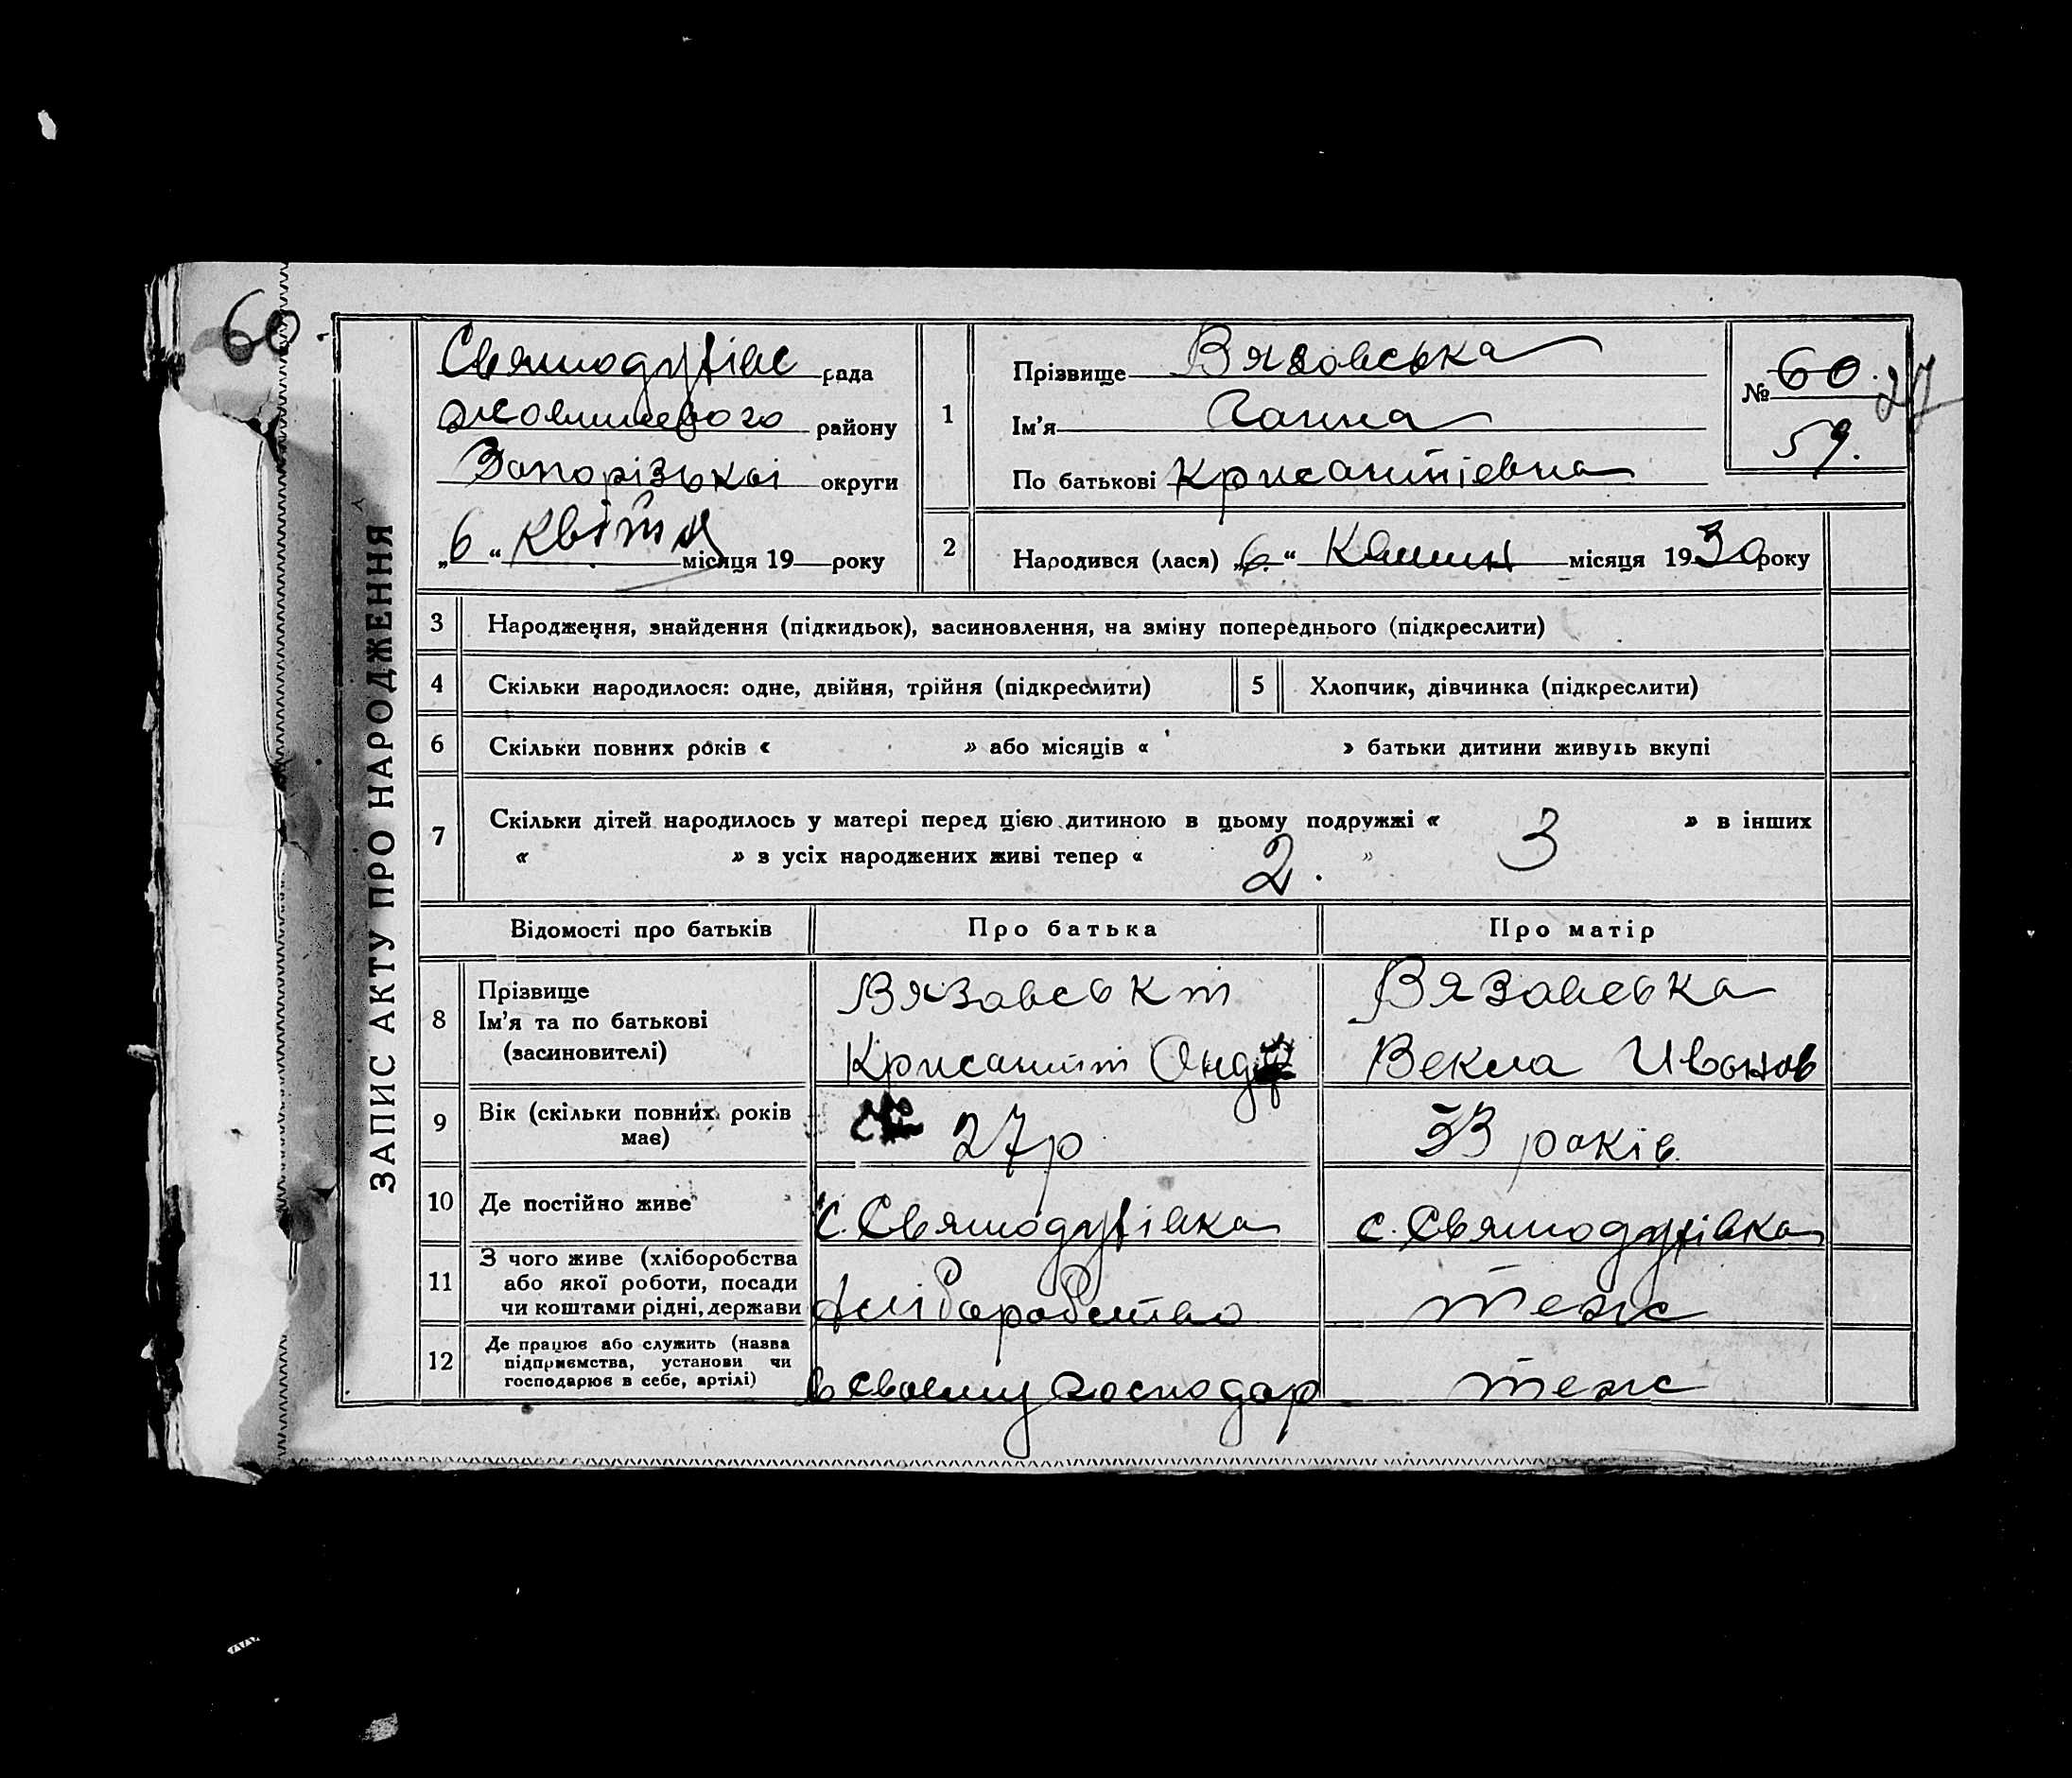 60
ЗАПИС АКТУ ПРО НАРОДЖЕННЯ
Святодухівс рада
Жовтневого району
Запорізької округи
„6“ квітня місяця 19 року
1
Прізвище Вязовська
Ім'я Ганна
По батькові Крисантіевна
№ 60. 27
59.
2 Народився (лася) „6.“ Квітня місяця 1930 року
3 Народження, знайдення (підкидьок), засиновлення, на зміну попереднього (підкреслити)
4 Скільки народилося: одне, двійня, трійня (підкреслити) 5 Хлопчик, дівчинка (підкреслити)
6 Скільки повних років « » або місяців « » батьки дитини живуть вкупі
7 Скільки дітей народилось у матері перед цією дитиною в цьому подружжі « 3 » в інших
« » з усіх народжених живі тепер « 2. »
Відомості про батьків Про батька Про матір
8 Прізвище Вязавськт Вязовська
Ім'я та по батькові
(засиновителі) Крисантт Анд Векла Иванов
9 Вік (скільки повних років
має) 27р 33 років.
10 Де постійно живе с. Святодухівка с. Святодухівка
11 З чого живе (хліборобства
або якої роботи, посади
чи коштами рідні, держави хліборобство теж
12 Де працює або служить (назва
підприємства, установи чи
господарює в себе, артілі) в своему господар теж